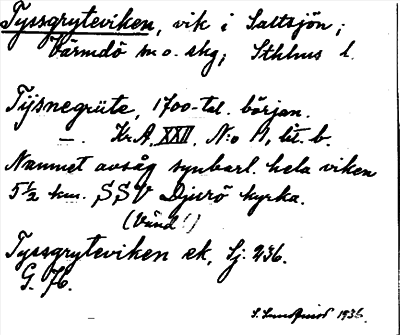 Tyssgryteviken, vik i Saltsjön;
Värmdö m o. skg; Sthlms l.
Tijsnegrüte, 1700-tal. början.
—. Kr.A. XXII. N:o 11, lit. b.
Namnet avsåg synbarl. hela viken
5½ km. SSV Djurö kyrka.
(Vänd!)
Tyssgryteviken ek, Sj. 236.
G. 76.
S. 1936.